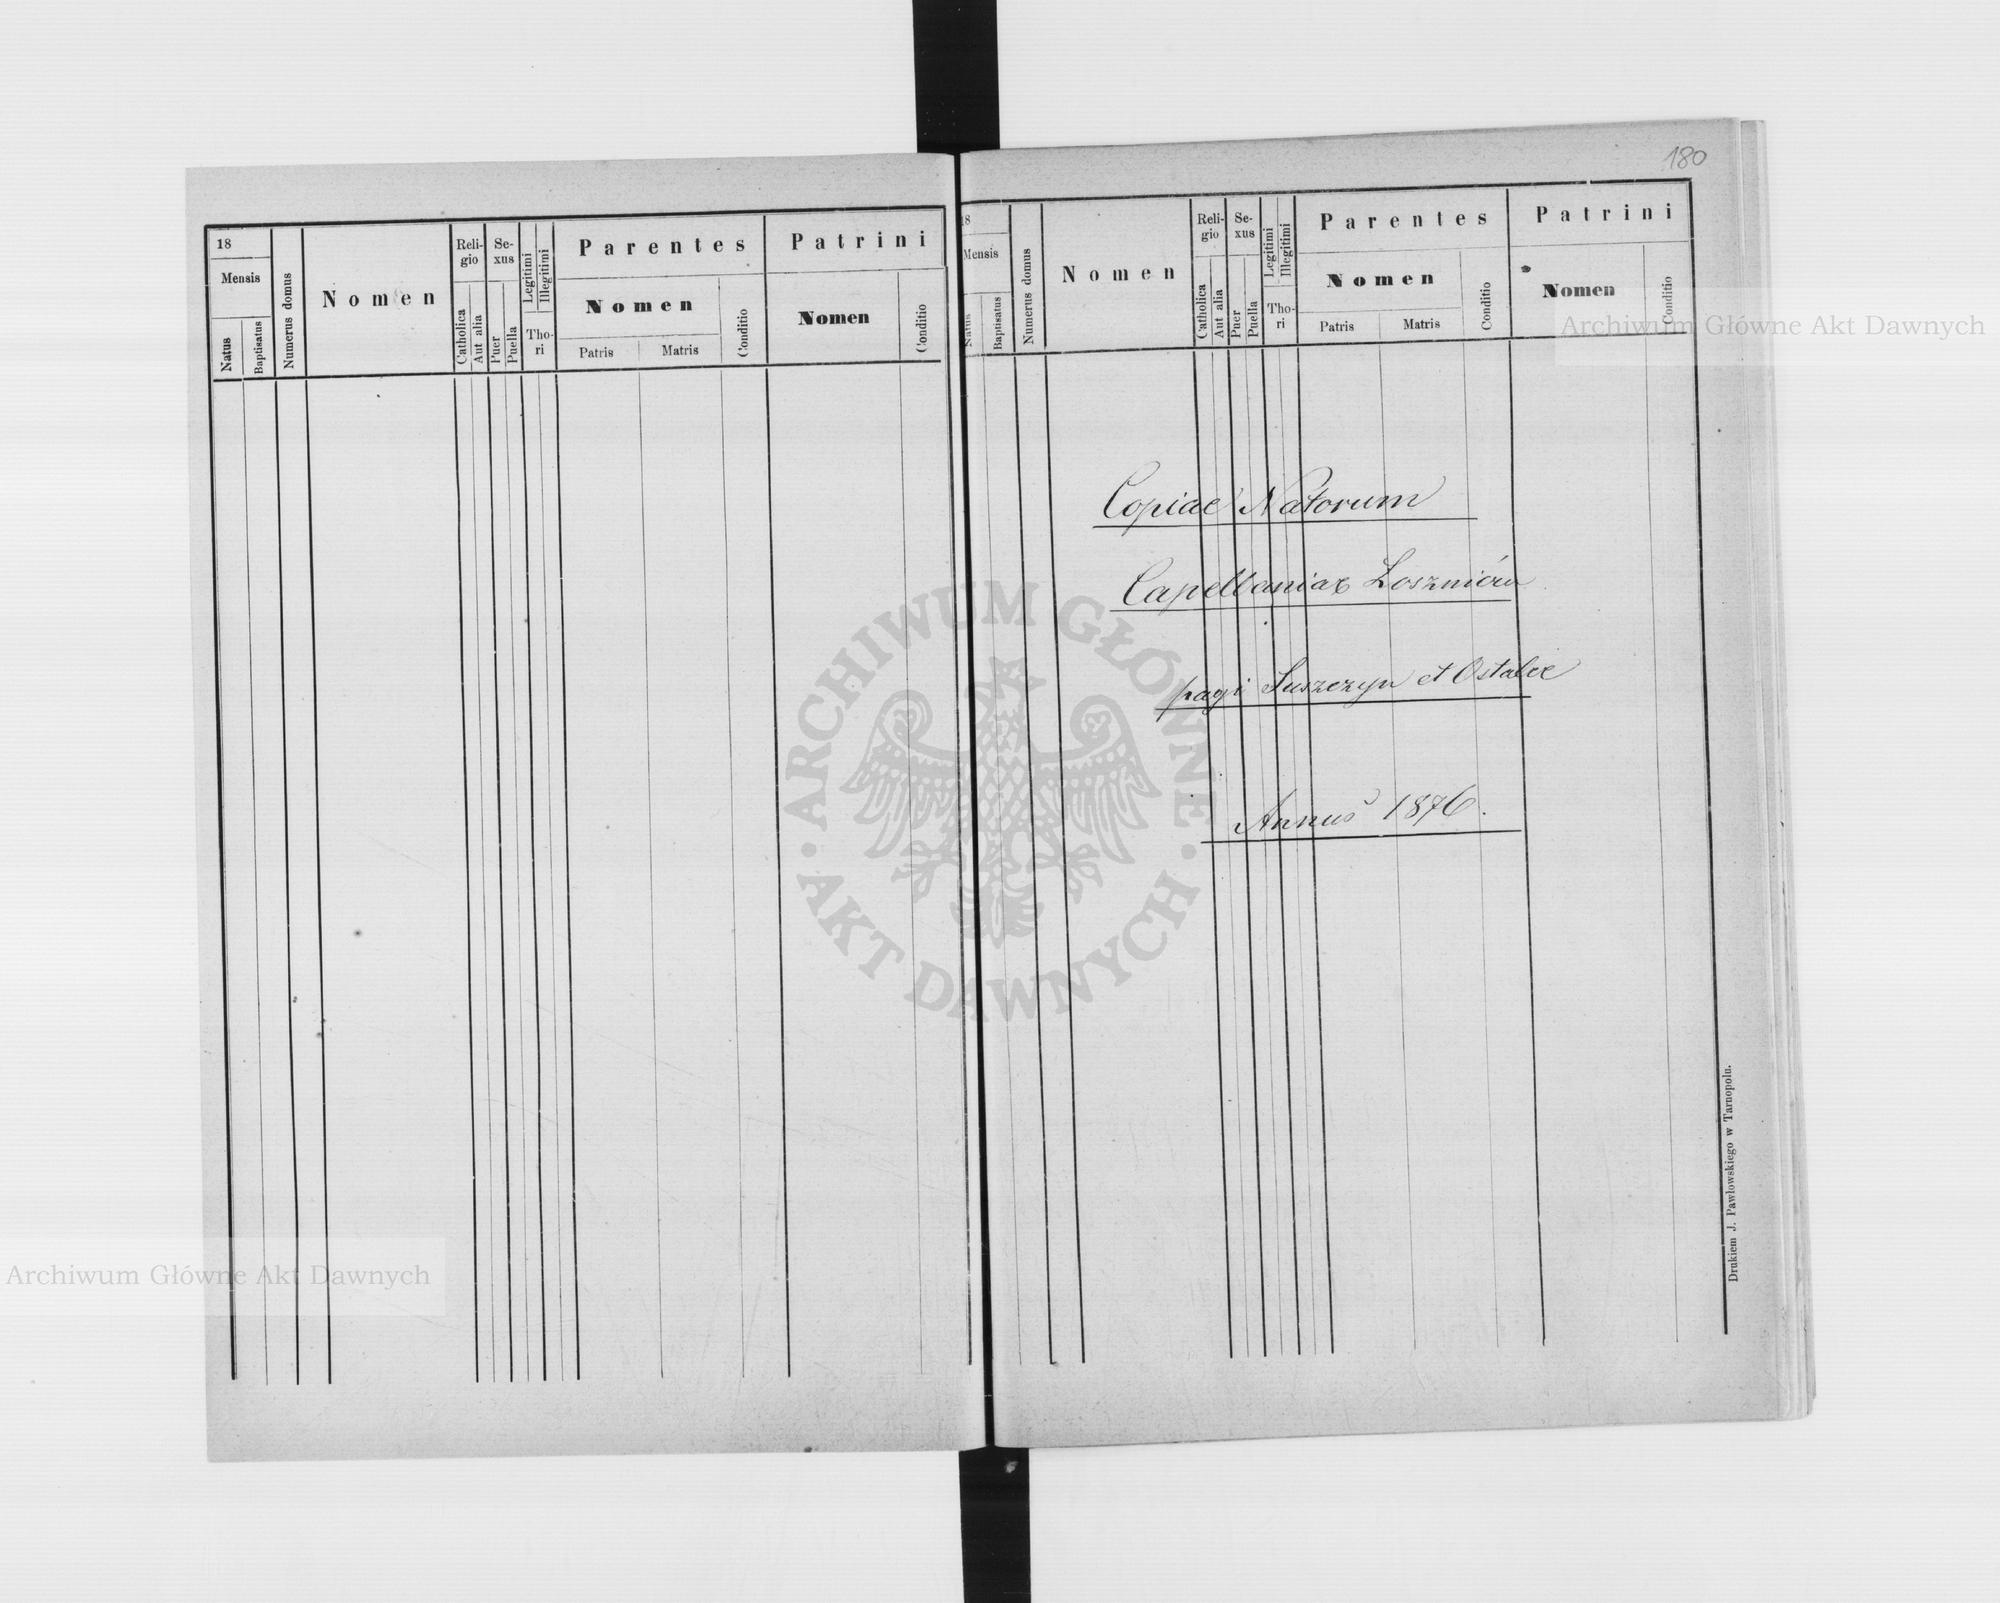 18
Mensis
Natus
Baptisatus
Numerus domus
Nomen
Religio
Catholica
Aut alia
Sexus
Puer
Puella
Legitimi
Illegitimi
Thori
Parentes
Nomen
Patris
Matris
Conditio
Patrini
Nomen
Conditio
180
18
Mensis
Natus
Baptisatus
Numerus domus
Nomen
Reli-
gio
Catholica
Aut alia
Se-
xus
Puer
Puella
Legitimi
Illegitimi
Tho-
ri
Parentes
Nomen
Patris
Matris
Conditio
Patrini
Nomen
Conditio
Copiae Natorum
Capellaniae Łoszniów
pagi Suszczyn et Ostalce
Annus 1876.
Drukiem J. Pawłowskiego w Tarnopolu.
ARCHIWUM GŁÓWNE AKT DAWNYCH
Archiwum Główne Akt Dawnych
Archiwum Główne Akt Dawnych